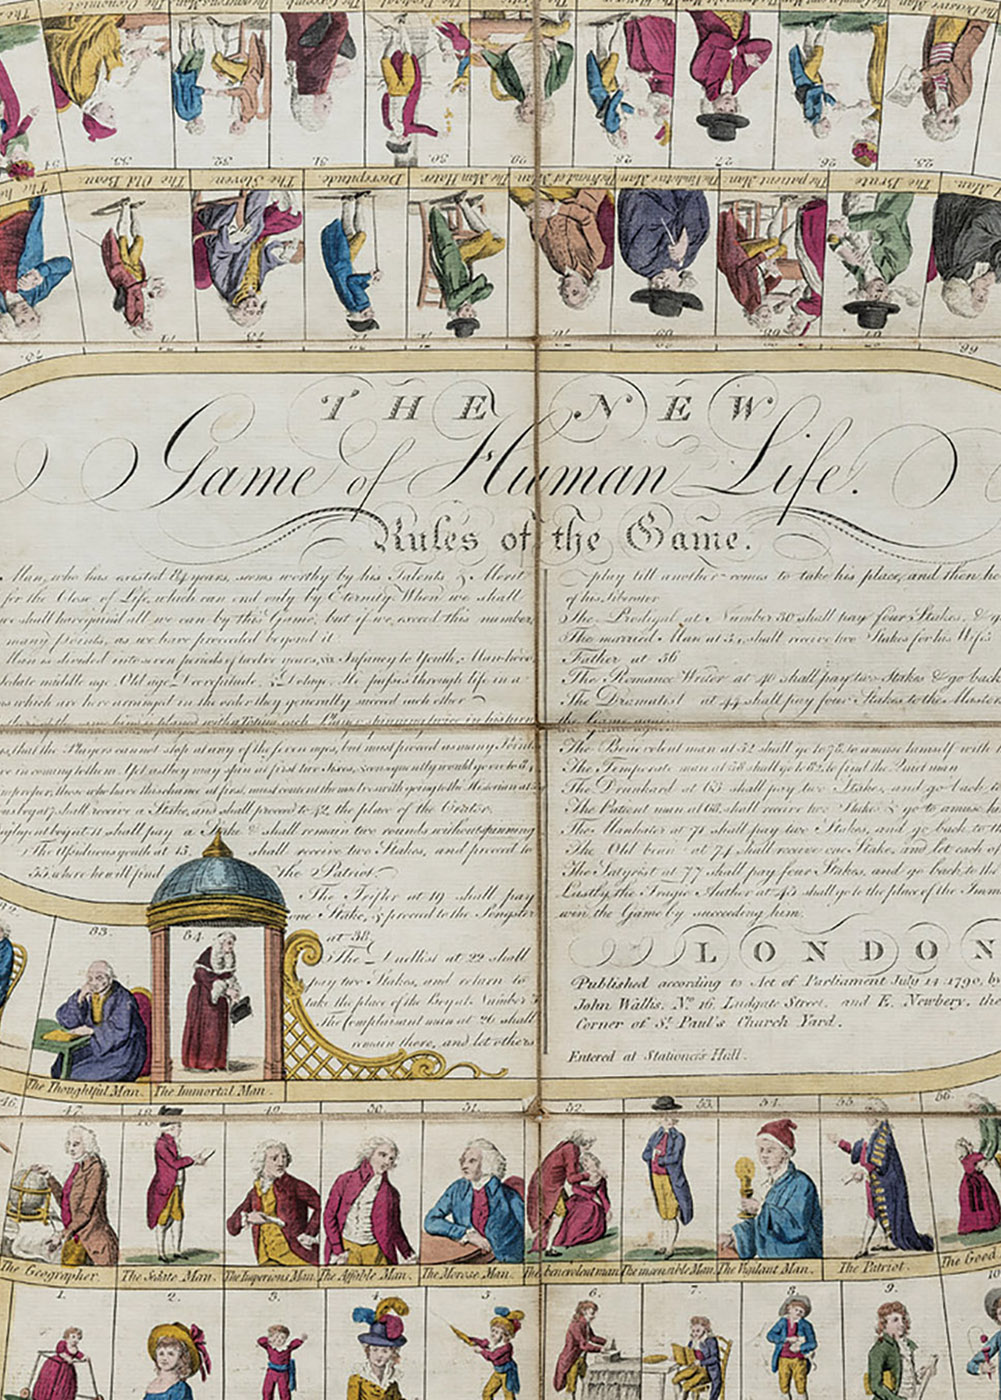 25.
26
27.
28.
29.
30.
31.
32.
33.
34
The Brute.
The patient Man.
The Man Hater.
Decrepitude.
The Sloven
The Old Beau.
66
67
68
69
70.
71
72
73
74
75.
THE NEW
Game of Human Life.
Rules of the Game.
Man, who has existed 84 years, seems worthy by his Talents & Merit
for the Close of Life, which can end only by Eternity. When we shall
we shall have gained all we can by this Game, but if we exceed this number,
many points, as we have proceeded beyond it
Man is divided into seven periods of twelve years, viz Infancy to Youth, Manhood,
sedate middle age, Old age, Decrepitude, & Dotage. He passes through life in a
which are here arranged in the order they generally succeed each other
with a Totum, each Player spinning twice in his turn
that the Players cannot stop at any of the seven ages, but must proceed as many Points
in coming to them. Yet as they may spin at first two Sixes, & consequently would go on to 84,
improper, those who have this chance at first, must content themselves with going to the Historian at
shall receive a Stake, and shall proceed to 42, the place of the Orator.
negligent boy at 11 shall pay a Stake & shall remain two rounds without spinning
The Assiduous youth at 15, shall receive two Stakes, and proceed to
55 where he will find the Patriot.
The Trifler at 19 shall pay
one Stake, & proceed to the Songster
at 38.
The Duellist at 22 shall
pay two Stakes, and return to
take the place of the Boy at Number 3
The Complaisant man at 26 shall
remain there, and let others
play till another comes to take his place, and then he
of his Liberator
The Prodigal at Number 30 shall pay four Stakes, &
The married Man at 34, shall receive two Stakes for his Wife's
Father at 56
The Romance Writer at 40 shall pay two Stakes & go back
The Dramatist at 44 shall pay four Stakes to the Master
the Game again
The Benevolent man at 52 shall go to 78, to amuse himself with
The Temperate man at 58 shall go to 82, to find the Quiet man
The Drunkard at 63 shall pay two Stakes, and go back to
The Patient man at 68, shall receive two Stakes & go to amuse
The Manhater at 71 shall pay two Stakes, and go back to the
The Old beau at 74 shall receive one Stake, and let each of
The Satyrist at 77 shall pay four Stakes, and go back to the
Lastly the Tragic Author at 45 shall go to the place of the Imm
win the Game by succeeding him.
LONDON
Published according to Act of Parliament July 14 1790, by
John Wallis, No. 16, Ludgate Street, and E. Newbery, the
Corner of St. Paul's Church Yard.
Entered at Stationers Hall.
82.
83.
84.
The Thoughtful Man.
The Immortal Man.
46.
47.
48
49.
50.
51.
52.
53.
54.
55.
56.
The Geographer.
The Sedate Man.
The Imperious Man.
The Affable Man.
The Morose Man.
The benevolent man
The insensible Man.
The Vigilant Man.
The Patriot.
The Good
1.
2.
3.
4.
5.
6.
7.
8.
9.
10